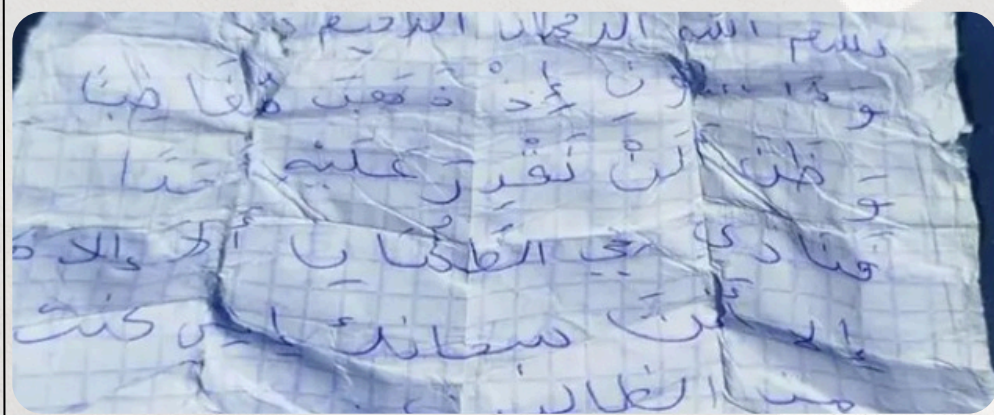 بسم الله الرحمان الرحيم
وذا النون إذ ذهب مُغاضِبًا
وَظَنَّ لَنْ نَقْدِرَ عَلَيْهِ
فنادى في الظلمات ألا إلاه
إلا أنت سبحانك إني كنت
من الظالمين